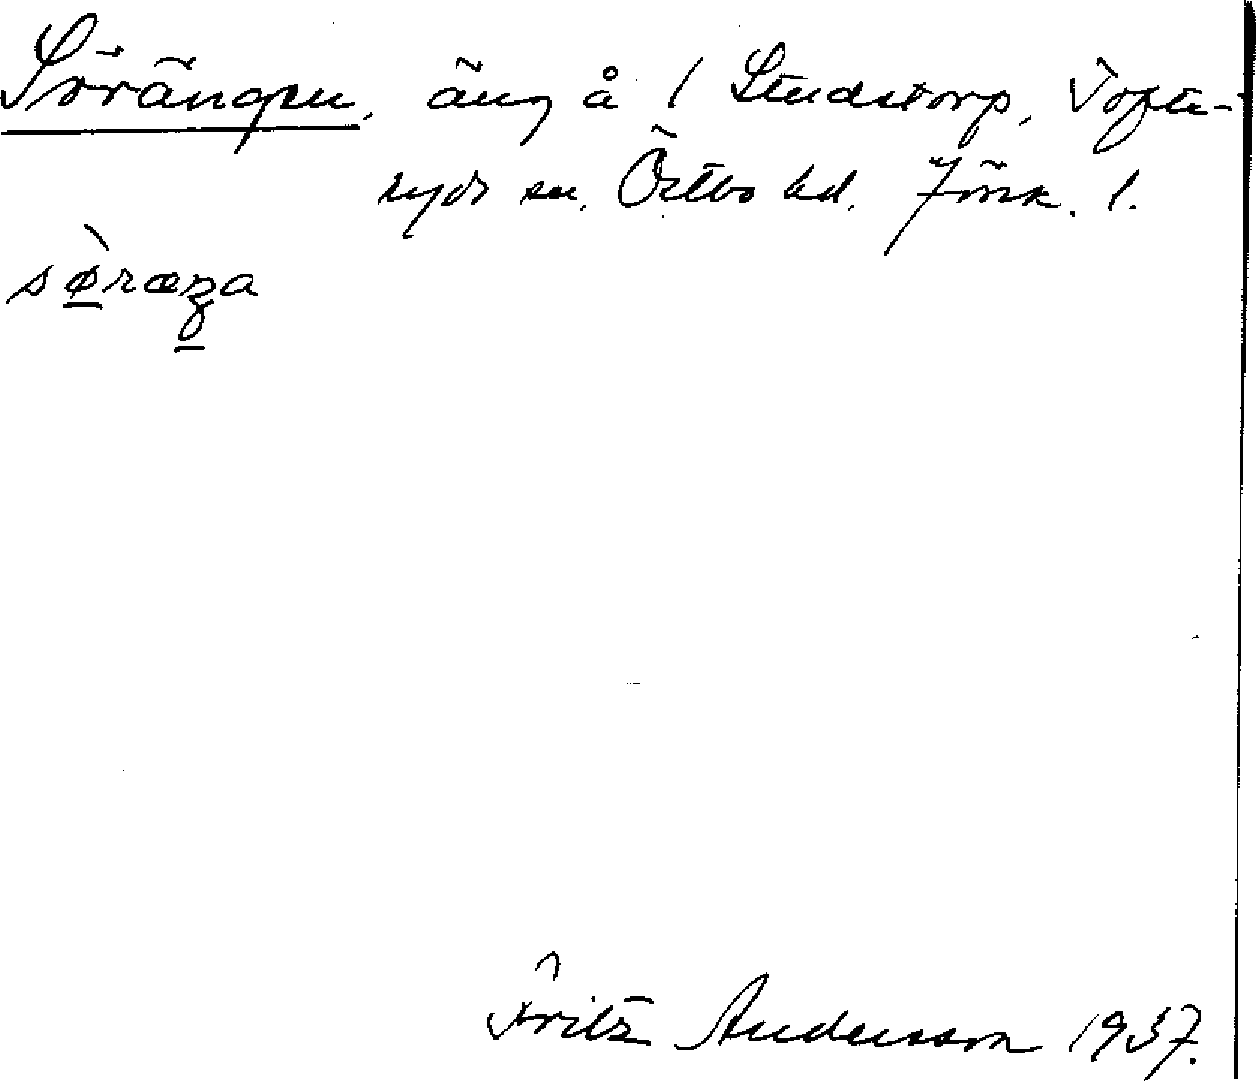 Sörängen, äng å 1 Studstorp, Tofte-
ryds sn. Östbo hd. Jönk. l.
söræŋa
Fritz Andersson 1937.